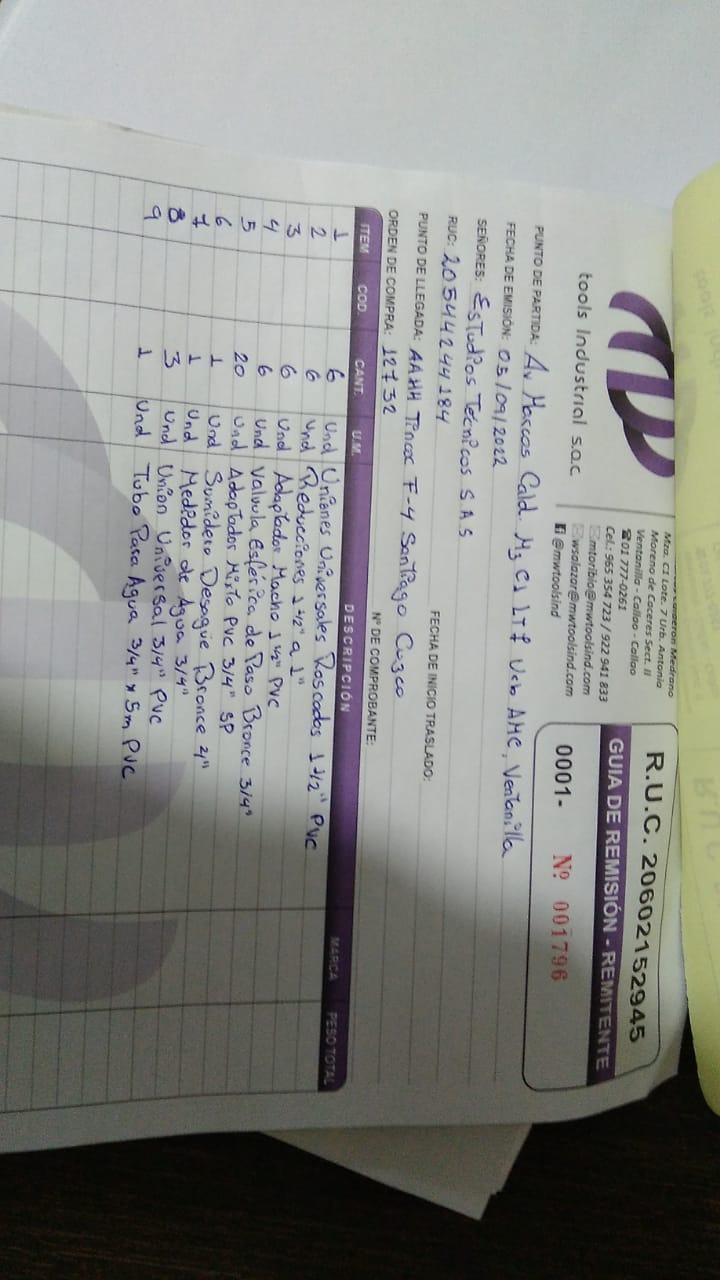 tools Industrial s.a.c
Medrano
Mza. C1 Lote. 7 Urb. Antonia
Moreno de Caceres Sect. II
Ventanilla - Callao - Callao
☎01 777-0261
Cel.: 965 354 723 / 922 941 833
mtoribio@mwtoolsind.com
wsalazar@mwtoolsind.com
@mwtoolsind
R.U.C. 20602152945
GUIA DE REMISIÓN - REMITENTE
0001- Nº 001796
PUNTO DE PARTIDA: Av Marcos Cald. Mz C1 LT7 Urb AMC, Ventanilla
FECHA DE EMISIÓN: 05/09/2022
FECHA DE INICIO TRASLADO:
SEÑORES: Estudios Técnicos SAS
RUC: 20544244184
PUNTO DE LLEGADA: AAHH F-4 Santiago Cusco
Nº DE COMPROBANTE:
ORDEN DE COMPRA: 12732
ITEM COD. CANT. U.M. DESCRIPCIÓN MARCA PESO TOTAL
1 6 Und Uniones Universales Roscadas 1 1/2" PVC
2 6 Und Reducciones 1 1/2" a 1"
3 6 Und Adaptador Macho 1 1/2" PVC
4 6 Und Valvula Esférica de Paso Bronce 3/4"
5 20 Und Adaptador Mixto PVC 3/4" SP
6 1 Und Sumidero Desagüe Bronce 4"
7 1 Und Medidor de Agua 3/4"
8 3 Und Union Universal 3/4" PVC
9 1 Und Tubo Para Agua 3/4" x 5m PVC